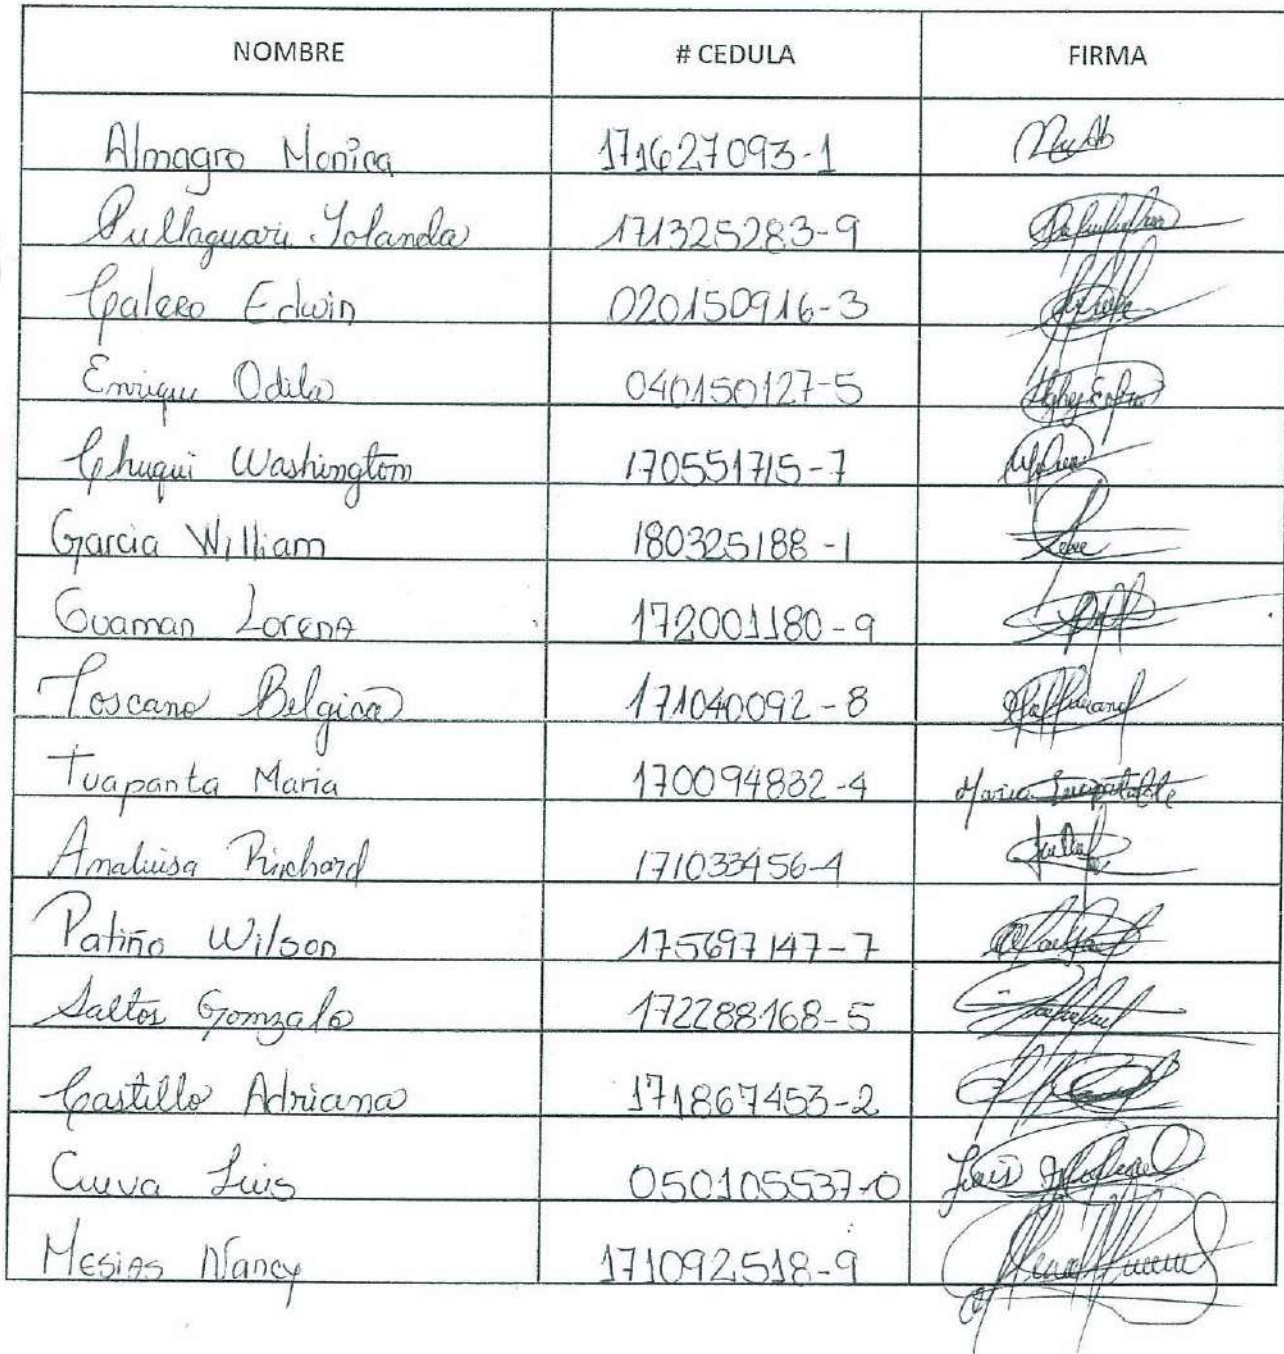 NOMBRE # CEDULA FIRMA
Almagro Monica 171627093-1
Pullaguari Yolanda 171325283-9
Calero Edwin 020150916-3
Enrique Odila 040150127-5
Chuqui Washington 170551715-7
Garcia William 180325188-1
Guaman Lorena 172001180-9
Toscano Belgica 171040092-8
Tuapanta Maria 170094832-4 Maria
Analuisa Richard 171033456-4
Patiño Wilson 175697147-7
Saltos Gonzalo 172288168-5
Castillo Adriana 171867453-2
Cueva Luis 050105537-0 Luis
Mesias Nancy 171092518-9